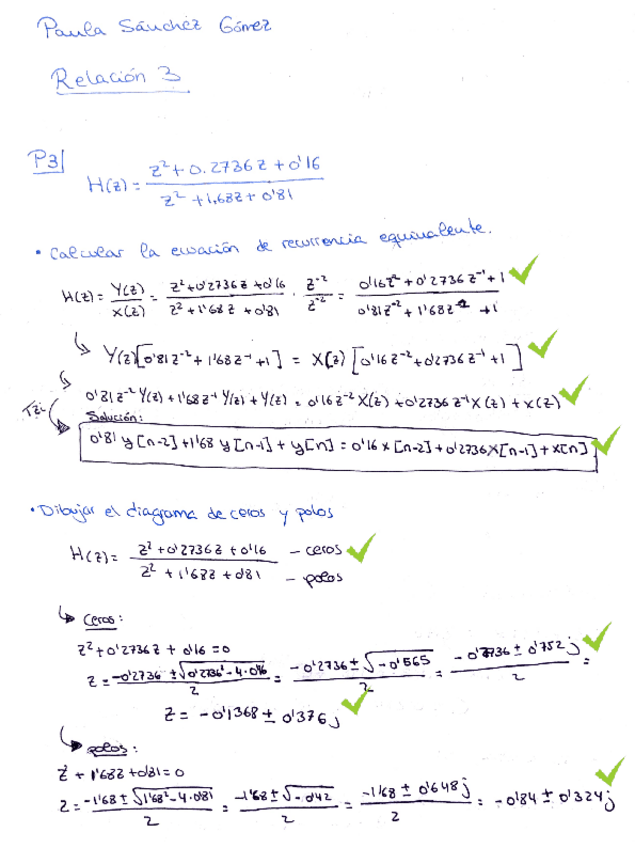 Paula Sánchez Gómez
Relación 3
P3| H(z) = (z² + 0.2736z + 0'16) / (z² + 1,68z + 0'81)
• Calcular la ecuación de recurrencia equivalente.
H(z) = Y(z)/X(z) = (z² + 0'2736z + 0'16) / (z² + 1'68z + 0'81) · z⁻²/z⁻² = (0'16z⁻² + 0'2736z⁻¹ + 1) / (0'81z⁻² + 1'68z⁻¹ + 1)
Y(z)[0'81z⁻² + 1'68z⁻¹ + 1] = X(z)[0'16z⁻² + 0'2736z⁻¹ + 1]
0'81z⁻² Y(z) + 1'68z⁻¹ Y(z) + Y(z) = 0'16z⁻² X(z) + 0'2736z⁻¹ X(z) + X(z)
Solución:
0'81 y[n-2] + 1'68 y[n-1] + y[n] = 0'16 x[n-2] + 0'2736 x[n-1] + x[n]
• Dibujar el diagrama de ceros y polos
H(z) = (z² + 0'2736z + 0'16) / (z² + 1'68z + 0'81) – ceros – polos
Ceros:
z² + 0'2736z + 0'16 = 0
z = (-0'2736 ± √(0'2736² - 4·0'16)) / 2 = (-0'2736 ± √(-0'565)) / 2 = (-0'2736 ± 0'752j) / 2 =
z = -0'1368 ± 0'376j
polos:
z² + 1'68z + 0'81 = 0
z = (-1'68 ± √(1'68² - 4·0'81)) / 2 = (-1'68 ± √(-0'42)) / 2 = (-1'68 ± 0'648j) / 2 = -0'84 ± 0'324j